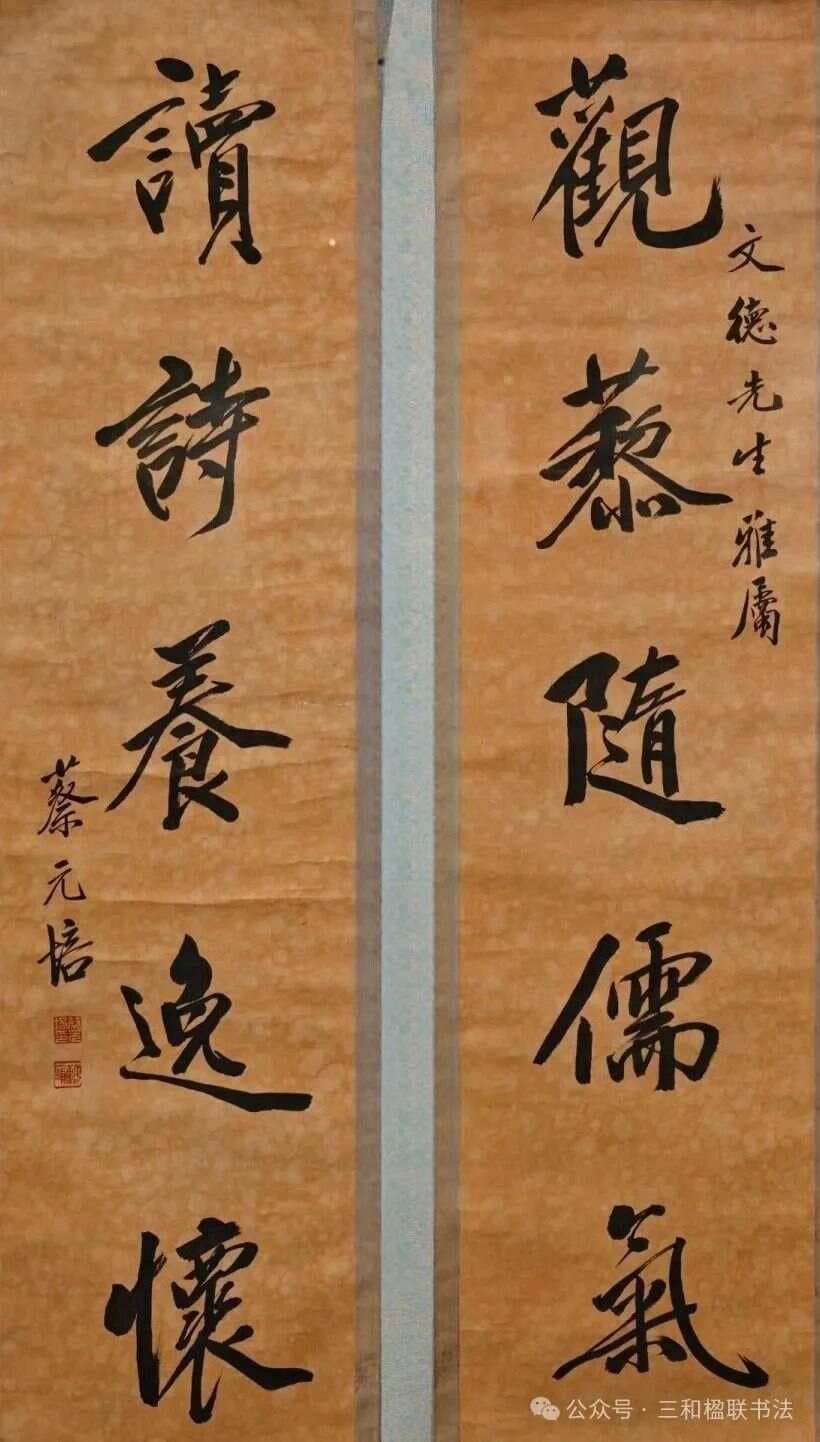 觀藜隨儒氣
文德先生雅屬
讀詩養逸懷
蔡元培
公众号·三和楹联书法